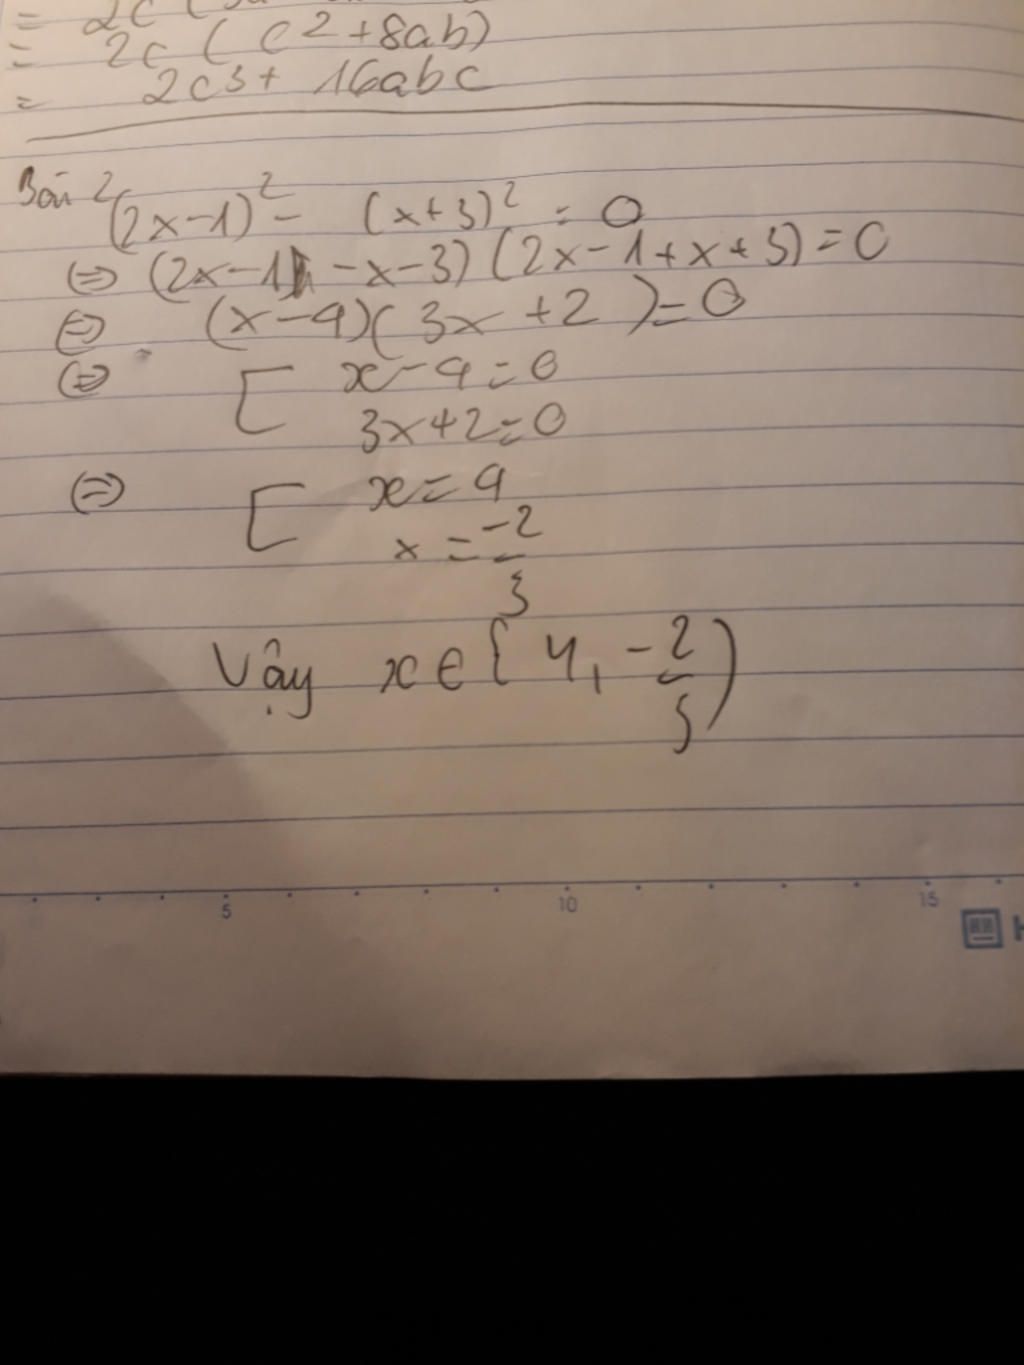 = 2c (
= 2c ( c2+8ab)
= 2c3+ 16abc
Bài 2
(2x-1)² - (x+3)² = 0
(=) (2x-1 -x-3) (2x-1+x+3)=0
(=) (x-4)( 3x +2 )=0
(=) [ x-4=0
3x+2=0
(=) [ x=4
x = -2/3
Vậy x∈{ 4, -2/3)
5 10 15